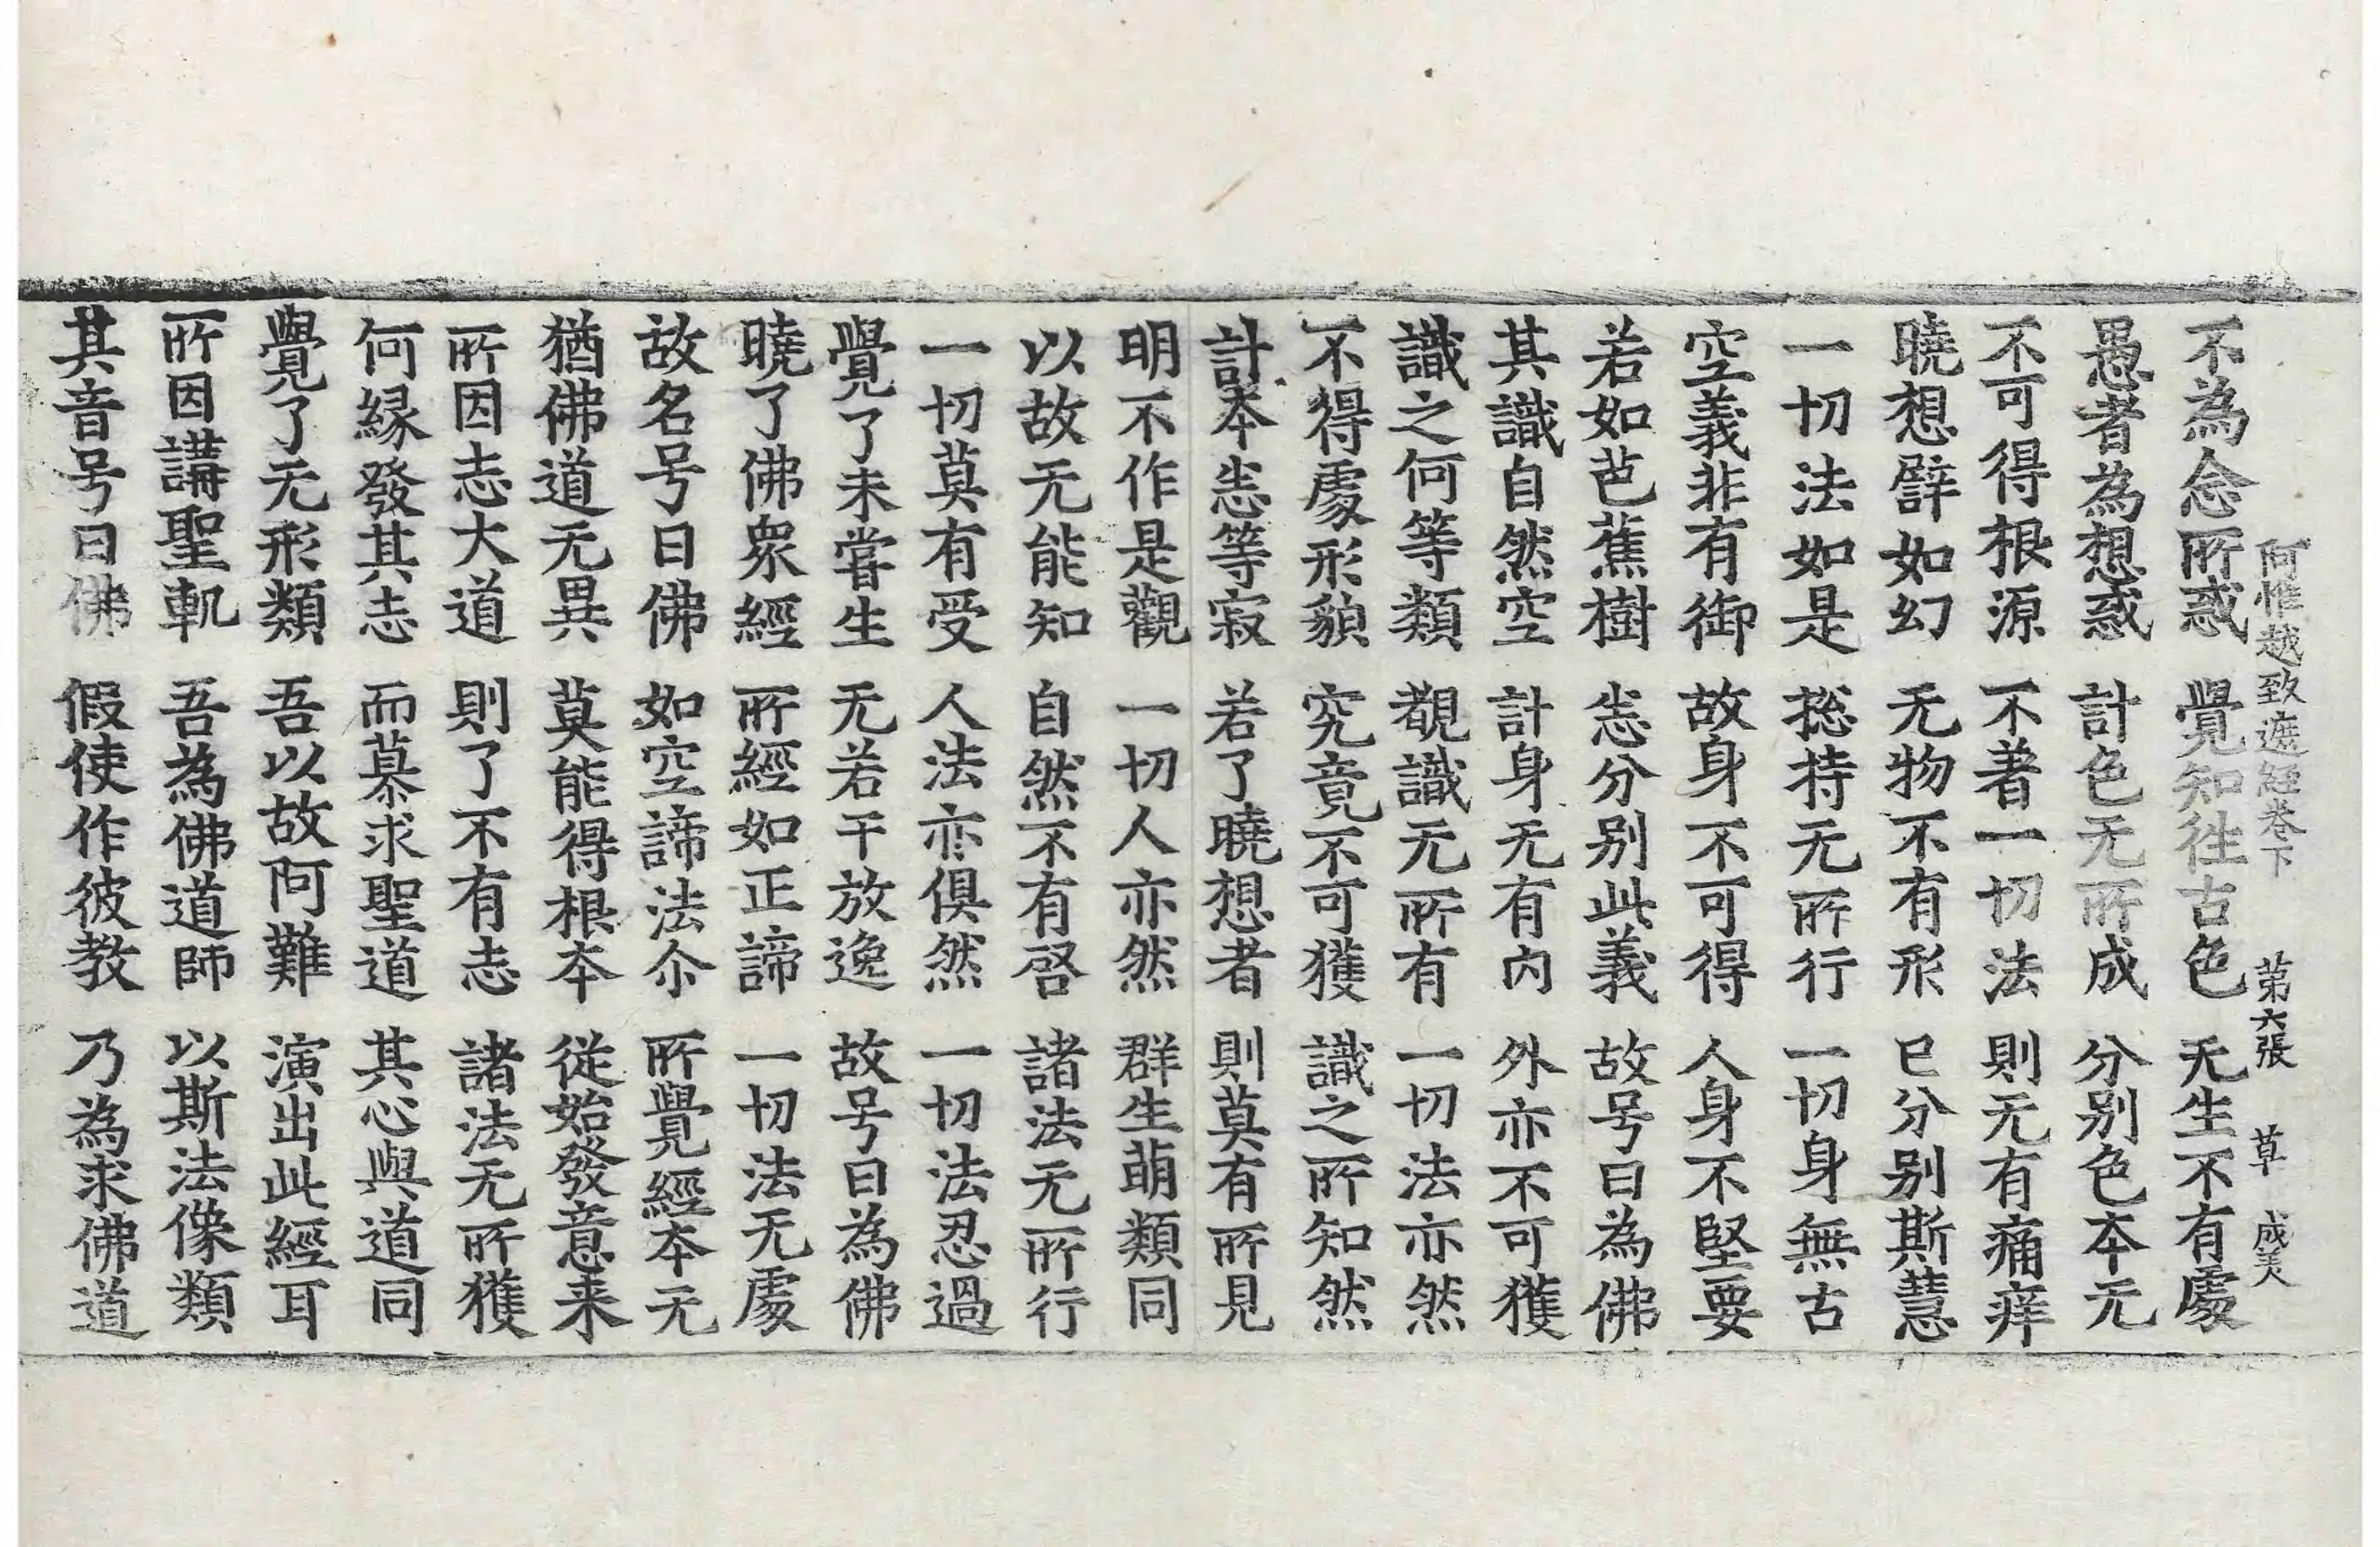 阿惟越致遮經卷下 第六張 草 成美
不為念所惑 覺知往古色 无生不有處
愚者為想惑 計色无所成 分别色本无
不可得根源 不著一切法 則无有痛痒
曉想譬如幻 无物不有形 已分别斯慧
一切法如是 捴持无所行 一切身無古
空義非有御 故身不可得 人身不堅要
若如芭蕉樹 悉分别此義 故号曰為佛
其識自然空 計身无有内 外亦不可獲
識之何等類 覩識无所有 一切法亦然
不得處形貌 究竟不可獲 識之所知然
計本悉等寂 若了曉想者 則莫有所見
明不作是觀 一切人亦然 群生萌類同
以故无能知 自然不有啓 諸法无所行
一切莫有受 人法亦俱然 一切法忍過
覺了未甞生 无若干放逸 故号曰為佛
曉了佛衆經 所經如正諦 一切法无處
故名号曰佛 如空諦法尒 所覺經本无
猶佛道无異 莫能得根本 從始發意来
所因志大道 則了不有志 諸法无所獲
何縁發其志 而慕求聖道 其心與道同
覺了无形類 吾以故阿難 演出此經耳
所因講聖軌 吾為佛道師 以斯法像類
其音号曰佛 假使作彼教 乃為求佛道